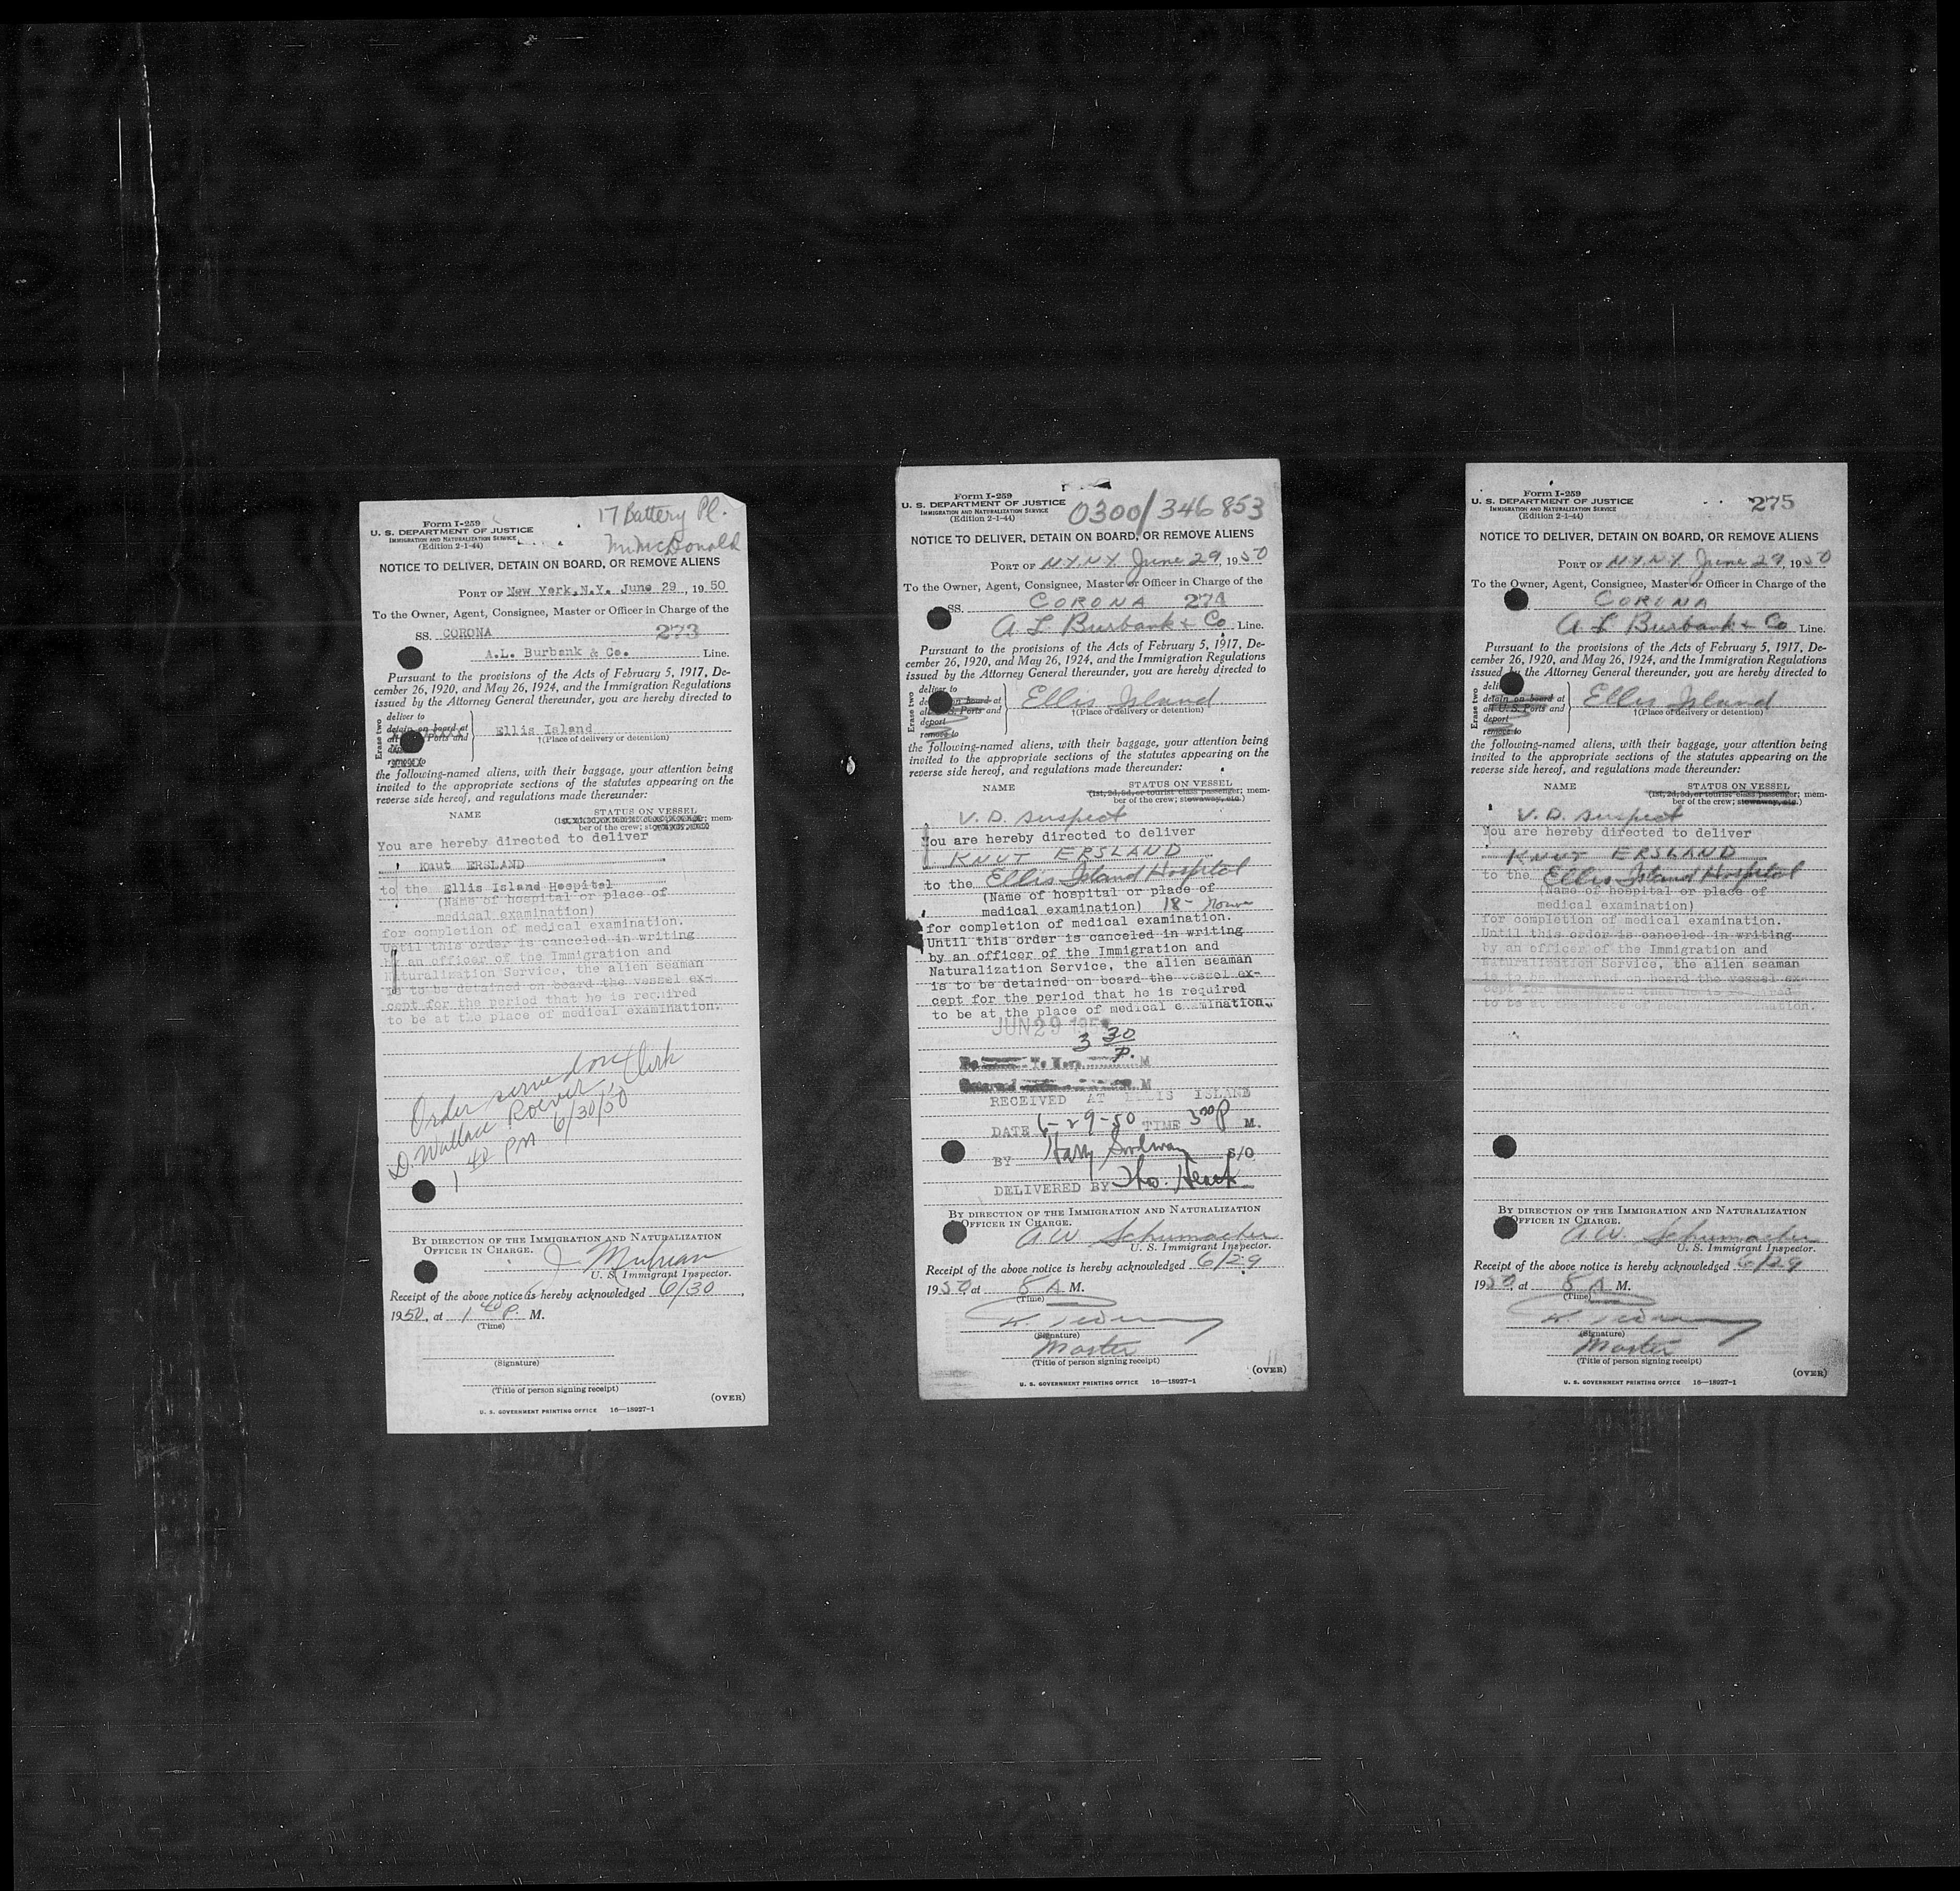 17 Battery Pl.
Mr. McDonald
Form I-259
U. S. DEPARTMENT OF JUSTICE
IMMIGRATION AND NATURALIZATION SERVICE
(Edition 2-1-44)
NOTICE TO DELIVER, DETAIN ON BOARD, OR REMOVE ALIENS
PORT OF New York, N.Y. June 29, 1950
To the Owner, Agent, Consignee, Master or Officer in Charge of the
SS. CORONA 273
A.L. Burbank & Co. Line.
Pursuant to the provisions of the Acts of February 5, 1917, De-
cember 26, 1920, and May 26, 1924, and the Immigration Regulations
issued by the Attorney General thereunder, you are hereby directed to
Erase two
deliver to
detain on board at
all Ports and
remove to
Ellis Island
†(Place of delivery or detention)
the following-named aliens, with their baggage, your attention being
invited to the appropriate sections of the statutes appearing on the
reverse side hereof, and regulations made thereunder:
NAME STATUS ON VESSEL
mem-
ber of the crew;
You are hereby directed to deliver
Knut ERSLAND
to the Ellis Island Hospital
(Name of hospital or place of
medical examination)
for completion of medical examination.
Until this order is canceled in writing
by an officer of the Immigration and
Naturalization Service, the alien seaman
is to be detained on board the vessel ex-
cept for the period that he is required
to be at the place of medical examination.
Order served on Clerk
D. Wallace Roever
1 40 PM 6/30/50
BY DIRECTION OF THE IMMIGRATION AND NATURALIZATION
OFFICER IN CHARGE.
U. S. Immigrant Inspector.
Receipt of the above notice is hereby acknowledged 6/30,
1950, at 1 40 P. M.
(Time)
(Signature)
(Title of person signing receipt)
(OVER)
U. S. GOVERNMENT PRINTING OFFICE 16—18927-1
Form I-259
U. S. DEPARTMENT OF JUSTICE
IMMIGRATION AND NATURALIZATION SERVICE
(Edition 2-1-44)
0300/346 853
NOTICE TO DELIVER, DETAIN ON BOARD, OR REMOVE ALIENS
PORT OF N.Y. N.Y. June 29, 1950
To the Owner, Agent, Consignee, Master or Officer in Charge of the
SS. CORONA 274
A L Burbank & Co Line.
Pursuant to the provisions of the Acts of February 5, 1917, De-
cember 26, 1920, and May 26, 1924, and the Immigration Regulations
issued by the Attorney General thereunder, you are hereby directed to
Erase two
deliver to
on board at
Ports and
deport
remove to
Ellis Island
†(Place of delivery or detention)
the following-named aliens, with their baggage, your attention being
invited to the appropriate sections of the statutes appearing on the
reverse side hereof, and regulations made thereunder:
NAME STATUS ON VESSEL
(1st, 2d, 3d, or tourist class passenger; mem-
ber of the crew; stowaway, etc.)
V. D. suspect
You are hereby directed to deliver
KNUT ERSLAND
to the Ellis Island Hospital
(Name of hospital or place of
medical examination) 18-
for completion of medical examination.
Until this order is canceled in writing
by an officer of the Immigration and
Naturalization Service, the alien seaman
is to be detained on board the vessel ex-
cept for the period that he is required
to be at the place of medical examination.
JUN 29 1950
3 30 P. M
M
RECEIVED AT ELLIS ISLAND
DATE 6-29-50 TIME 3 P M.
BY Harry S/O
DELIVERED BY Tho.
BY DIRECTION OF THE IMMIGRATION AND NATURALIZATION
OFFICER IN CHARGE.
A W Schumacher
U. S. Immigrant Inspector.
Receipt of the above notice is hereby acknowledged 6/29
1950 at 8 A M.
(Time)
(Signature)
Master
(Title of person signing receipt)
(OVER)
U. S. GOVERNMENT PRINTING OFFICE 16—18927-1
Form I-259
U. S. DEPARTMENT OF JUSTICE
IMMIGRATION AND NATURALIZATION SERVICE
(Edition 2-1-44)
275
NOTICE TO DELIVER, DETAIN ON BOARD, OR REMOVE ALIENS
PORT OF N.Y. N.Y. June 29, 1950
To the Owner, Agent, Consignee, Master or Officer in Charge of the
CORONA
A L Burbank & Co Line.
Pursuant to the provisions of the Acts of February 5, 1917, De-
cember 26, 1920, and May 26, 1924, and the Immigration Regulations
issued by the Attorney General thereunder, you are hereby directed to
Erase two
detain on board at
all U. S. Ports and
deport
remove to
Ellis Island
†(Place of delivery or detention)
the following-named aliens, with their baggage, your attention being
invited to the appropriate sections of the statutes appearing on the
reverse side hereof, and regulations made thereunder:
NAME STATUS ON VESSEL
(1st, 2d, 3d, or tourist class passenger; mem-
ber of the crew; stowaway, etc.)
V. D. suspect
You are hereby directed to deliver
KNUT ERSLAND
to the Ellis Island Hospital
(Name of hospital or place of
medical examination)
for completion of medical examination.
Until this order is canceled in writing
by an officer of the Immigration and
Naturalization Service, the alien seaman
is to be detained on board the vessel ex-
cept for the period that he is required
to be at the place of medical examination.
BY DIRECTION OF THE IMMIGRATION AND NATURALIZATION
OFFICER IN CHARGE.
A W Schumacher
U. S. Immigrant Inspector.
Receipt of the above notice is hereby acknowledged 6/29
1950, at 8 A M.
(Time)
(Signature)
Master
(Title of person signing receipt)
(OVER)
U. S. GOVERNMENT PRINTING OFFICE 16—18927-1